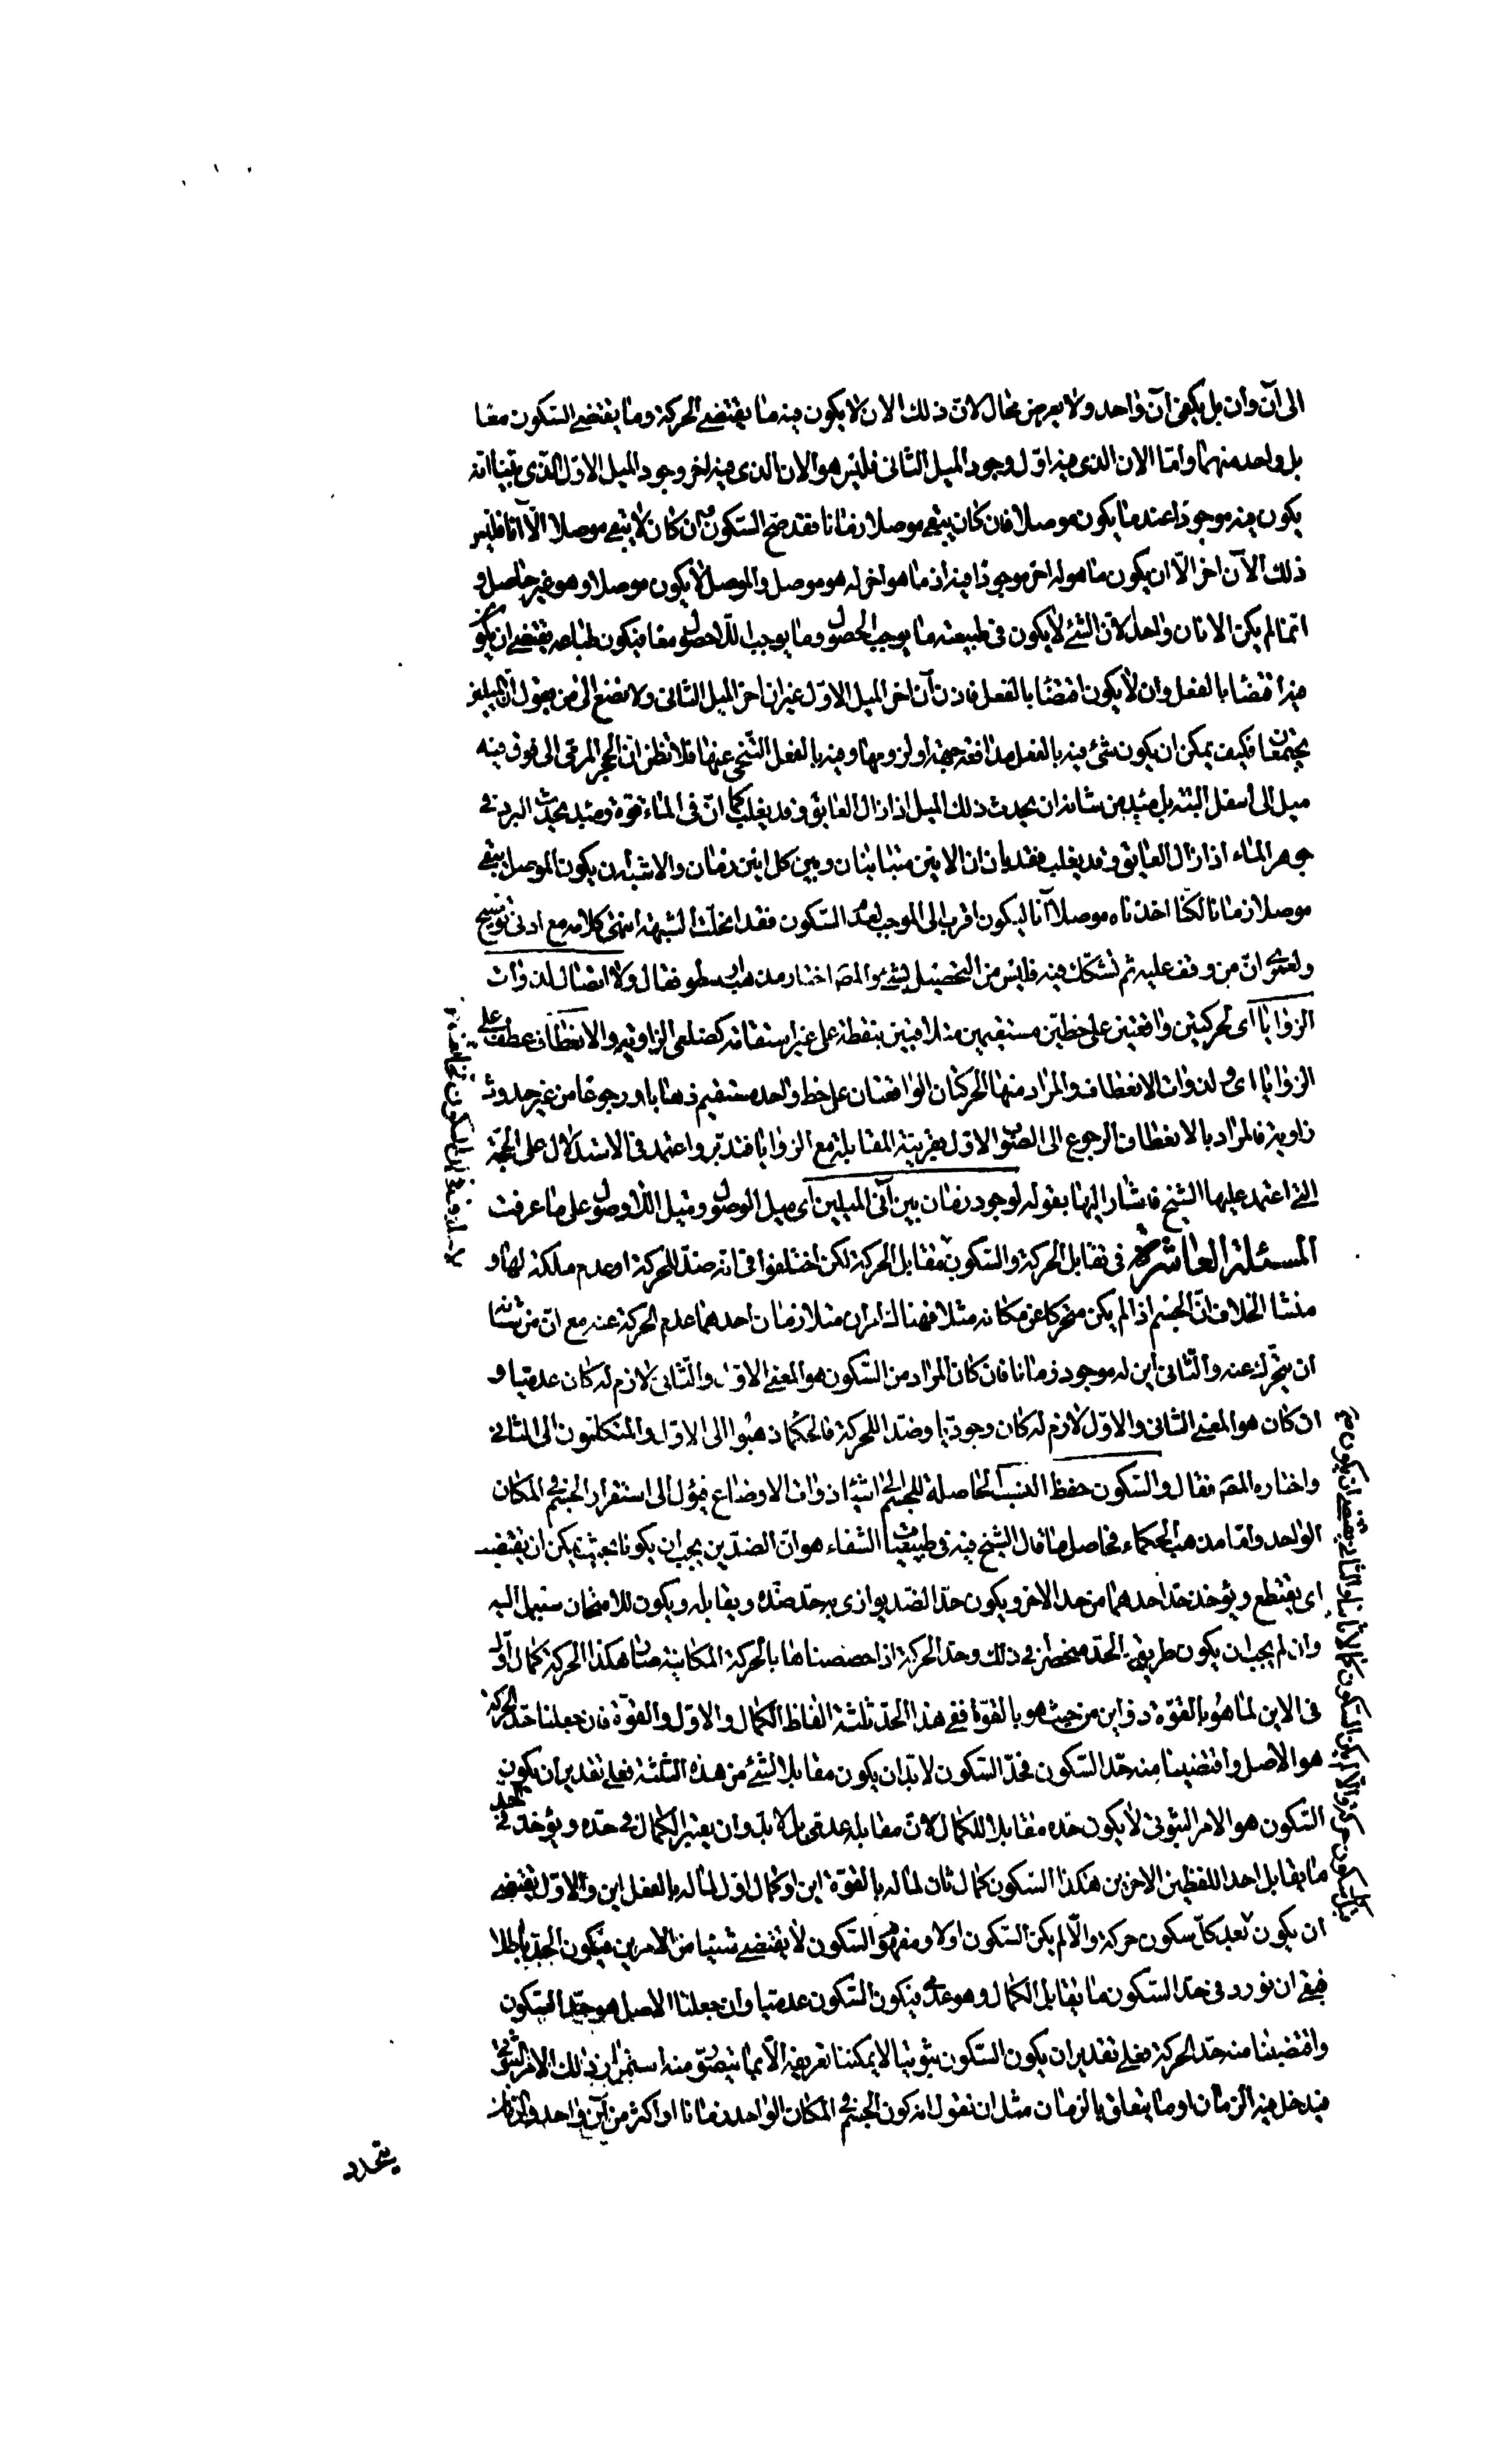 الى آن وان بل يكفى آن واحد ولا يعرض محال لان ذلك الان لا يكون فيه ما يقتضى الحركة وما يقتضى السكون معا
بل واحد منهما واما الان الذى فيه اول وجود الميل الثانى فليس هو الان الذى فيه اخر وجود الميل الاول الذى بينا انه
يكون فيه موجودا عند ما يكون موصلا فان كان يبقى موصلا زمانا فقد صح السكون وان كان لا يبقى موصلا الا آنا فليس
ذلك الآن اخرا الا ان يكون ما هو له اخر موجودا فيه اذ ما هو اخر له هو موصل والموصل لا يكون موصلا وهو غير حاصل و
انما لم يكن الانان واحدا لان الشئ لا يكون فى طبيعته ما يوجب الحصول وما يوجب اللاحصول معا فيكون طباعه يقتضى ان يكون
فيه اقتضا بالفعل وان لا يكون اقتضا بالفعل فاذن آن اخر الميل الاول غير ان اخر الميل الثانى ولا تصغ الى من يقول ان الميلين
يجتمعان فكيف يمكن ان يكون شئ فيه بالفعل مدافعة جهة او لزومها وفيه بالفعل التنحى عنها فلا تظن ان الحجر المرمى الى فوق فيه
ميل الى اسفل البتة بل مبدء من شانه ان يحدث ذلك الميل اذا زال العايق وقد يغلب كما ان فى الماء قوة ومبدء يحدث البرد فى
جوهر الماء اذا زال العايق وقد يغلب فقد بان ان الانين متباينان وبين كل انين زمان والاشبه ان يكون الموصل يبقى
موصلا زمانا لكنا اخذناه موصلا آنا ليكون اقرب الى الموجب لعدم السكون فقد انحلت الشبهة انتهى كلامه مع ادنى توضيح
ولعمرى ان من وقف عليه ثم تشكك فيه فليس من التحصيل لشئ والمص اختار مذهب ارسطو فقال ولا اتصال لذوات
الزوايا اى لحركتين واقعتين على خطين مستقيمين متلاقيين بنقطة على غير استقامة كضلعى الزاوية والانعطاف عطف على
الزوايا اى ولذوات الانعطاف والمراد منها الحركتان الواقعتان على خط واحد مستقيم ذهابا ورجوعا من غير حدوث
زاوية فالمراد بالانعطاف الرجوع الى الصوب الاول بقرينة المقابلة مع الزوايا فتدبر واعتمد فى الاستدلال على الحجة
التى اعتمد عليها الشيخ فاشار اليها بقوله لوجود زمان بين آنى الميلين اى ميل الوصول وميل اللاوصول على ما عرفت
المسئلة العاشرة فى تقابل الحركة والسكون مقابل الحركة لكن اختلفوا فى انه ضد للحركة او عدم ملكة لها و
منشا الخلاف ان الجسم اذا لم يكن متحركا عن مكانه مثلا فهناك امران متلازمان احدهما عدم الحركة عنه مع ان من شانه
ان يتحرك عنه والثانى اين له موجود زمانا فان كان المراد من السكون هو المعنى الاول والثانى لازم له كان عدميا و
ان كان هو المعنى الثانى والاول لازم له كان وجوديا وضدا للحركة فالحكماء ذهبوا الى الاول والمتكلمون الى الثانى
واختاره المص فقال والسكون حفظ النسب الحاصلة للجسم الى اشياء ذوات الاوضاع فيؤل الى استقرار الجسم فى المكان
الواحد واما مذهب الحكماء فحاصل ما قال الشيخ فيه فى طبيعيات الشفاء هو ان الضدين يجب ان يكونا بحيث يمكن ان يقتضب
اى يقتطع ويؤخذ حد احدهما من حد الاخر ويكون حد الضد يوازى به حد ضده ويقابله ويكون للامتحان سبيل اليه
وان لم يجب ان يكون طريق الحد منحصرا فى ذلك وحد الحركة اذا خصصناها بالحركة المكانية مثلا هكذا الحركة كمال اول
فى الاين لما هو بالقوة ذو اين من حيث هو بالقوة ففى هذا الحد ثلثة الفاظ الكمال والاول والقوة فان جعلنا حد الحركة
هو الاصل واقتضبنا منه حد السكون فحد السكون لا بد ان يكون مقابلا لشئ من هذه الثلثة فعلى تقدير ان يكون
السكون هو الامر الثبوتى لا يكون حده مقابلا للكمال لان مقابله عدمى بل لا بد وان يعتبر الكمال فى حده ويؤخذ فى الحد
ما يقابل احد اللفظين الاخرين هكذا السكون كمال ثان لما له بالقوة اين او كمال اول لما له بالفعل اين والاول يقتضى
ان يكون بعد كل سكون حركة والا لم يكن السكون اولا ومفهوم السكون لا يقتضى شيئا من الامرين فيكون الحد باطلا
فبقى ان نورد فى حد السكون ما يقابل الكمال وهو عدمى فيكون السكون عدميا وان جعلنا الاصل هو حد السكون
واقتضبنا منه حد الحركة فعلى تقدير ان يكون السكون ثبوتيا لا يمكننا تعريفه الا بما يتصور منه استمرار ذلك الامر الثبوتى
فيدخل فيه الزمان او ما يتعلق بالزمان مثل ان نقول انه كون الجسم فى المكان الواحد زمانا او اكثر من آن واحد والزمان
يتحدد